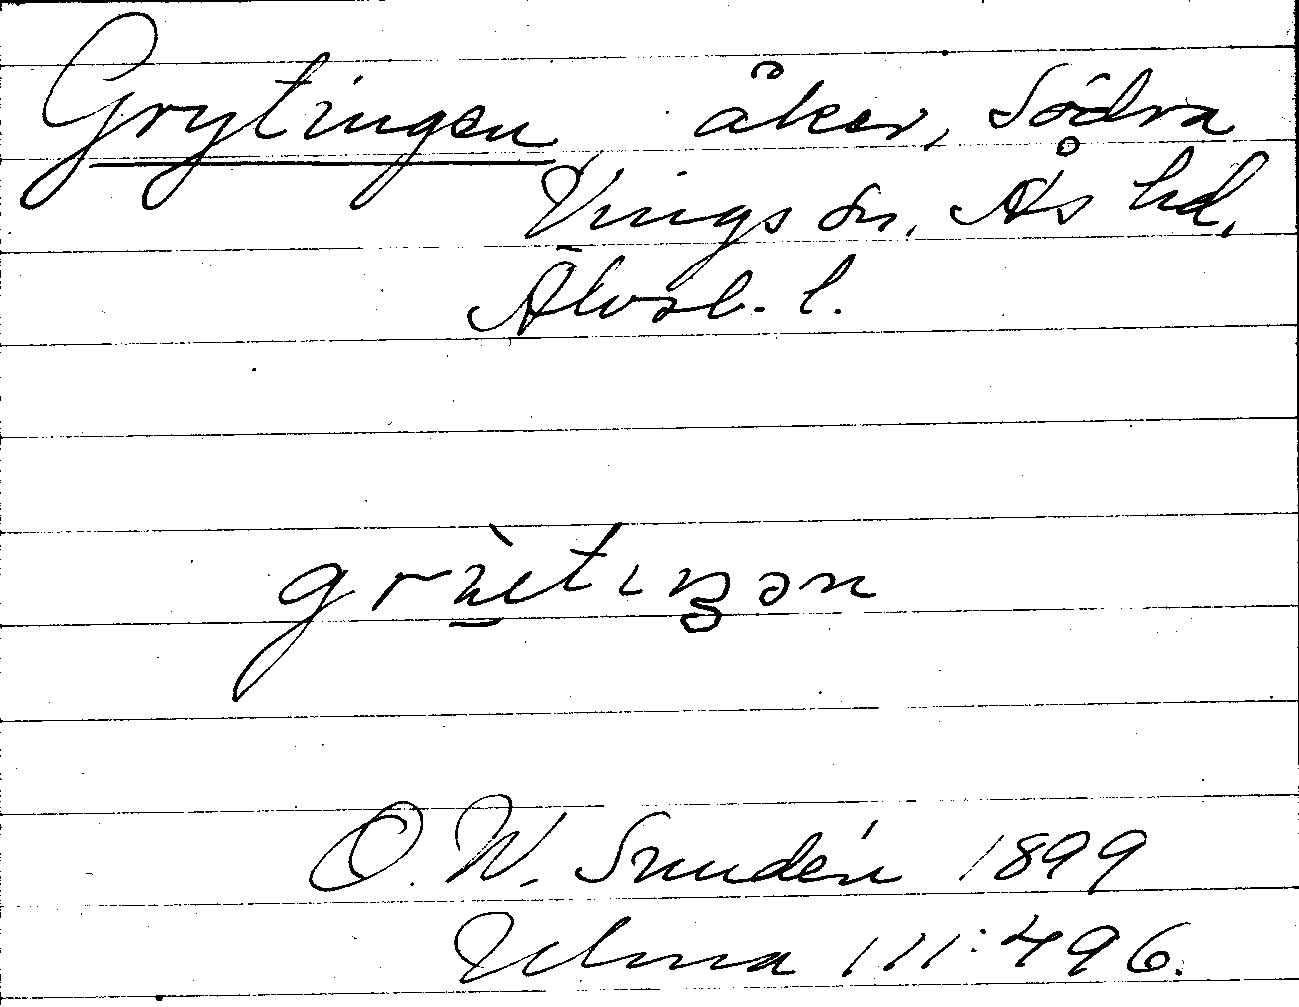 Grytingen åker, Södra
Vings sn, Ås hd,
Älvsb. l.
O. W. Sundén 1899
Ulma 111:496.